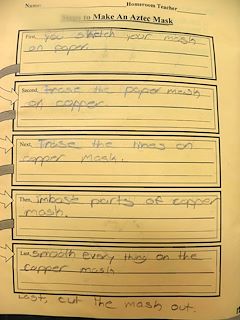 Name: Homeroom Teacher
Steps to Make An Aztec Mask
First, You sketch your mask
on paper.
Second, Trase the paper mask
on copper.
Next, Trase the lines on
copper mask.
Then, imbose parts of copper
mask.
Last, smooth every thing on the
copper mask
Last, cut the mask out.